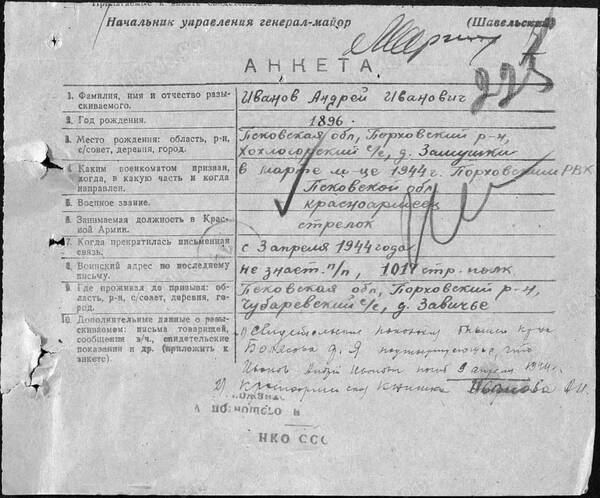 Начальник управления генерал-майор (Шавельский)
223
АНКЕТА
1. Фамилия, имя и отчество разыскиваемого. Иванов Андрей Иванович
2. Год рождения. 1896.
3. Место рождения: область, р-н, с/совет, деревня, город. Псковская обл, Порховский р-н,
Хохлогорский с/с, д. Замушки
4. Каким военкоматом призван, когда, в какую часть и когда направлен. в марте м-це 1944г. Порховским РВК
Псковской обл
5. Военное звание. красноармеец
6. Занимаемая должность в Красной Армии. стрелок
7. Когда прекратилась письменная связь. с 3 апреля 1944 года
8. Воинский адрес по последнему письму. не знает п/п, 1017 стр. полк
9. Где проживал до призыва: область, р-н, с/совет, деревня, город. Псковская обл, Порховский р-н,
Чубаревский с/с, д. Завичье
10. Дополнительные данные о разыскиваемом: письма товарищей, сообщения в/ч., свидетельские показания и др. (приложить к анкете).
1) Свидетельские
что
Иванов Андрей Иванович погиб 9 апреля 1944г.
2) Красноармейская книжка Иванова А.И.
НКО ССС